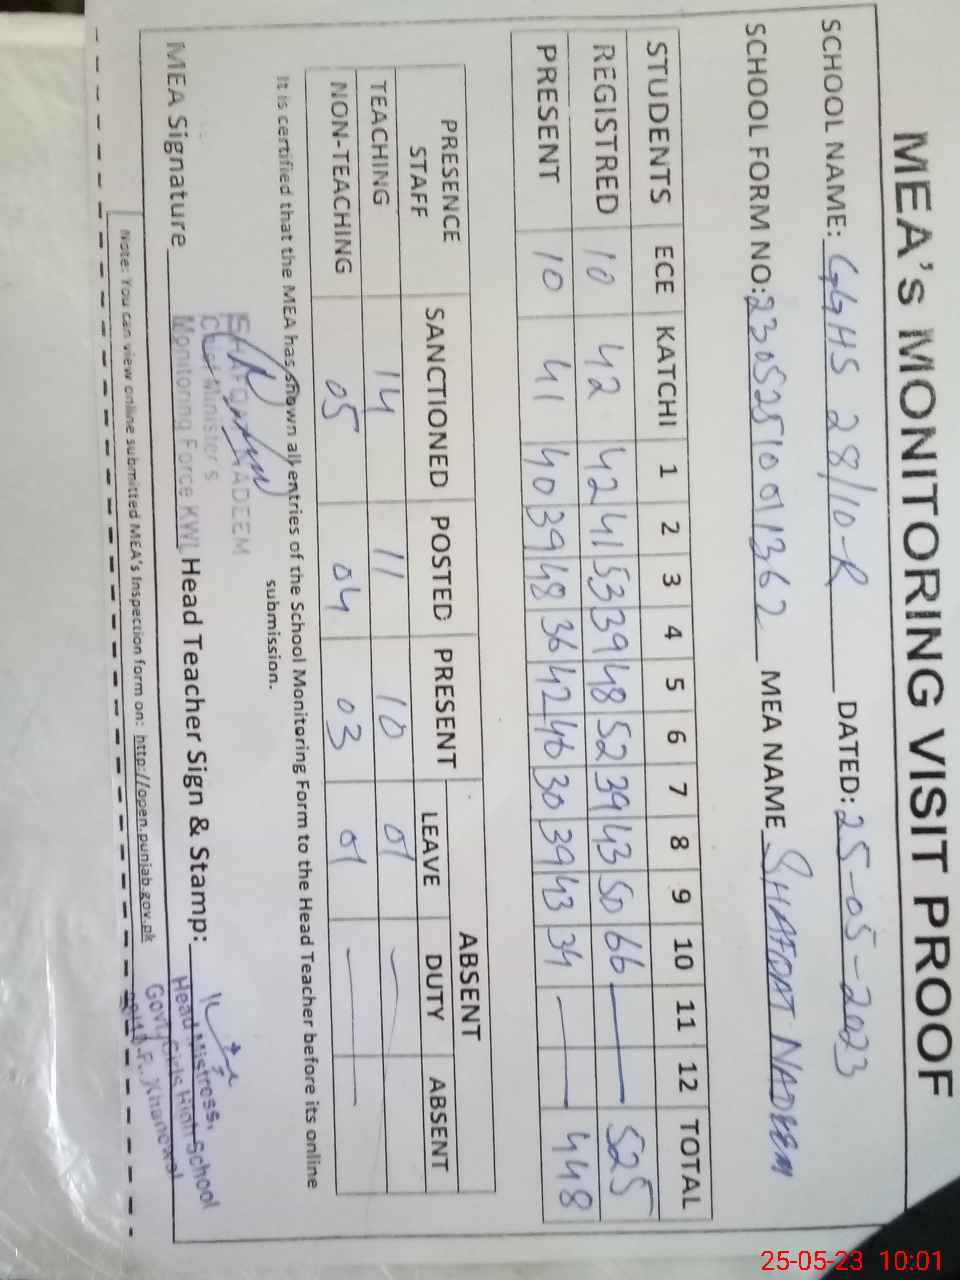 MEA's MONITORING VISIT PROOF
SCHOOL NAME: GGHS 28/10-R DATED: 25-05-2023
SCHOOL FORM NO: 23052510001362 MEA NAME SHAFQAT NADEEM
STUDENTS ECE KATCHI 1 2 3 4 5 6 7 8 9 10 11 12 TOTAL
REGISTRED 10 42 42 41 53 39 48 52 39 43 50 66 — 525
PRESENT 10 41 40 39 48 36 42 46 30 39 43 34 — — 448
PRESENCE ABSENT
STAFF SANCTIONED POSTED PRESENT LEAVE DUTY ABSENT
TEACHING 14 11 10 01 —
NON-TEACHING 05 04 03 01 — —
It is certified that the MEA has shown all entries of the School Monitoring Form to the Head Teacher before its online
submission.
SHAFQAT NADEEM
Chief Minister's
Monitoring Force KWL
MEA Signature Head Teacher Sign & Stamp:
Head Mistress,
Govt. Girls High School
Khanewal
Note: You can view online submitted MEA's Inspection form on: http://open.punjab.gov.pk
25-05-23 10:01